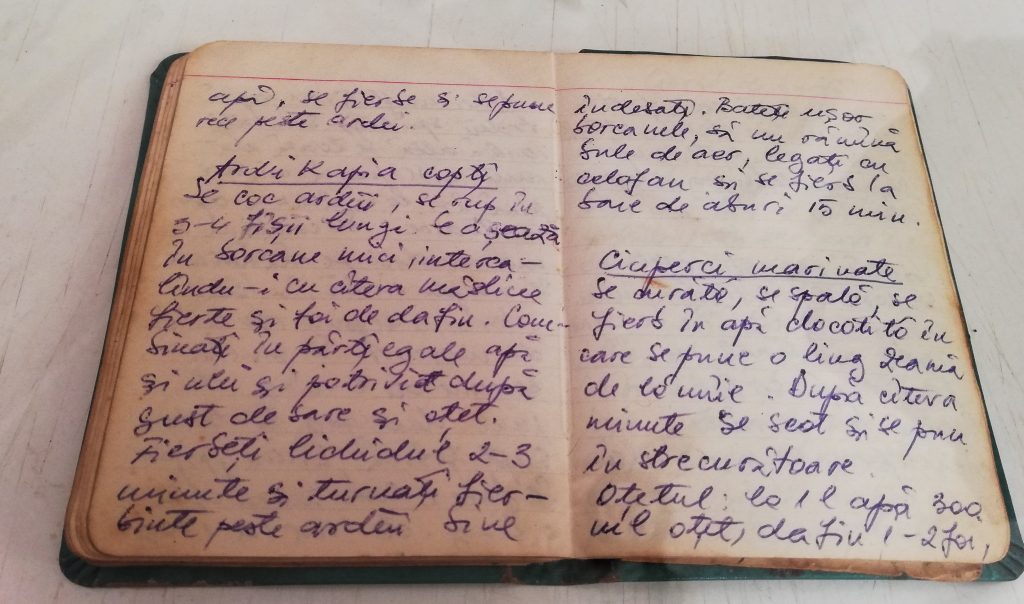 apă, se fierse și se pune
rece peste ardei.
Ardei Kapia copți
Se coc ardeii, se rup în
3-4 fîșii lungi. Se așează
în borcane mici, interca-
lîndu-i cu cîteva măsline
fierte și foi de dafin. Com-
binați în părți egale apă
și ulei și potriviți după
gust de sare și oțet.
Fierbeți lichidul 2-3
minute și turnați fier-
binte peste ardeii bine
îndesați. Bateți ușor
borcanele, să nu rămînă
bule de aer, legați cu
celofan și se fierb la
baie de aburi 15 min.
Ciuperci marinate
Se curăță, se spală, se
fierb în apă clocotită în
care se pune o ling zeamă
de lămîie. După cîteva
minute se scot și se pun
în strecurătoare.
Oțetul: la 1 l apă 300
ml oțet, dafin 1-2 foi,